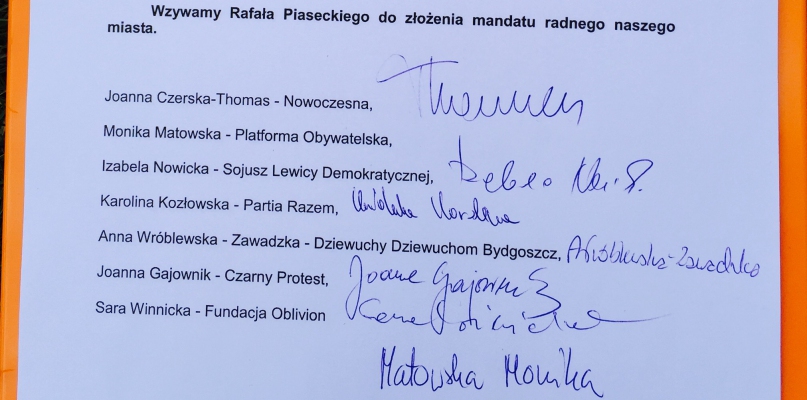 Wzywamy Rafała Piaseckiego do złożenia mandatu radnego naszego
miasta.
Joanna Czerska-Thomas - Nowoczesna, Thomas
Monika Matowska - Platforma Obywatelska,
Izabela Nowicka - Sojusz Lewicy Demokratycznej,
Karolina Kozłowska - Partia Razem,
Anna Wróblewska - Zawadzka - Dziewuchy Dziewuchom Bydgoszcz, AWróblewska-Zawadzka
Joanna Gajownik - Czarny Protest, Joanna Gajownik
Sara Winnicka - Fundacja Oblivion
Matowska Monika